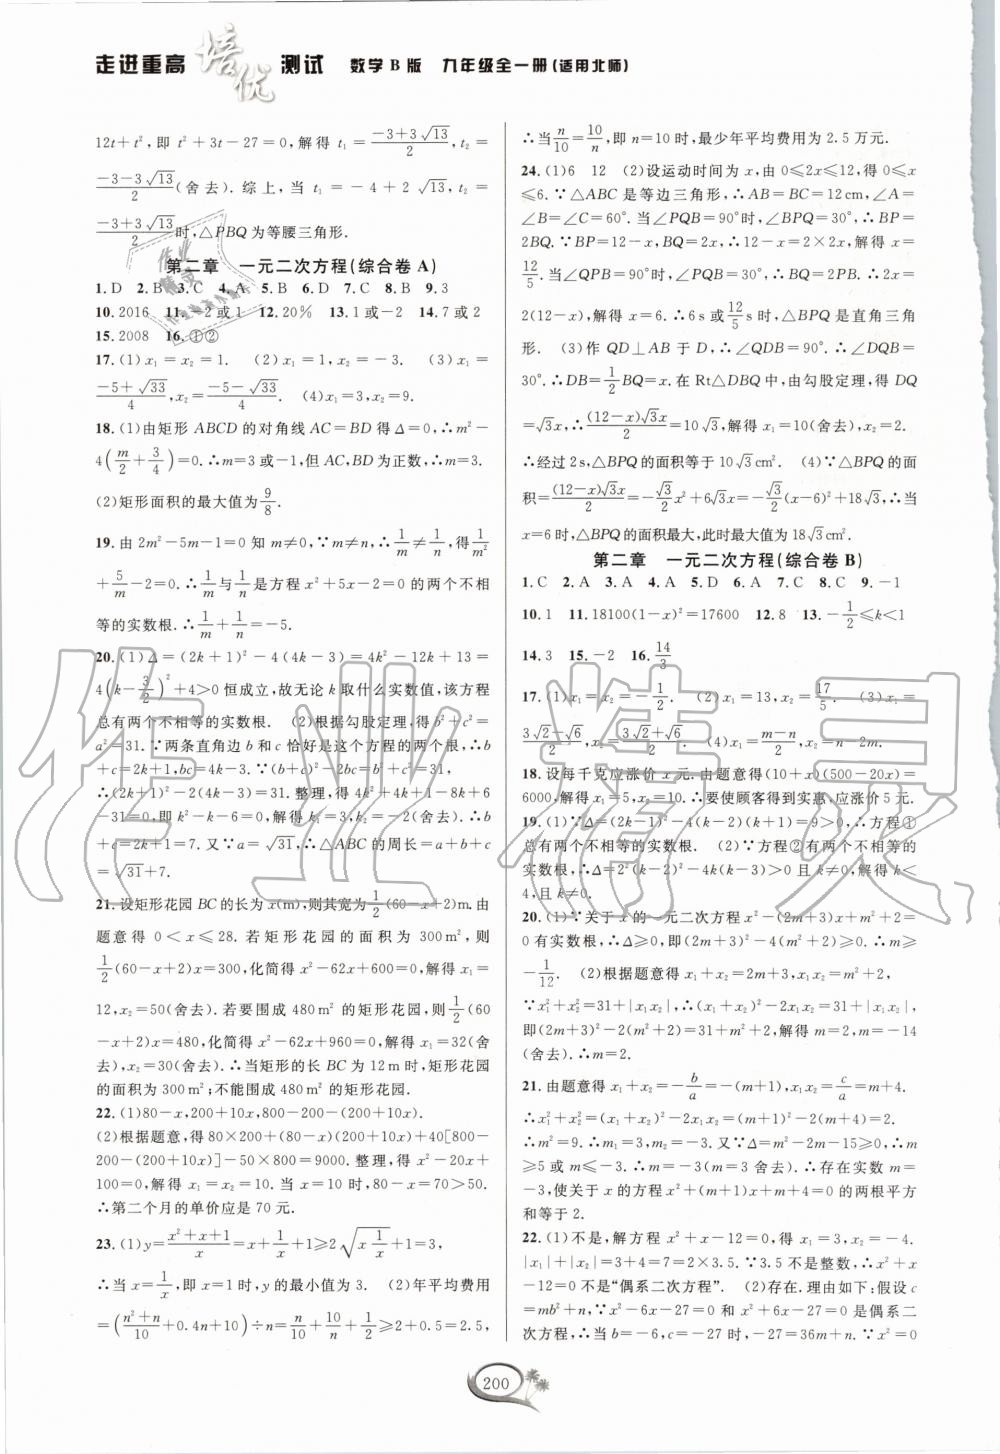 走进重高 培优 测试 数学B版 九年级全一册(适用北师)
12t+t²,即 t²+3t-27=0,解得 t₁=(-3+3√13)/2,t₂=
(-3-3√13)/2(舍去).综上,当 t₁=-4+2√13,t₂=
(-3+3√13)/2时,△PBQ为等腰三角形.
第二章 一元二次方程(综合卷A)
1.D 2.B 3.C 4.A 5.B 6.D 7.C 8.B 9.3
10.2016 11.-2或1 12.20% 13.1或-2 14.7或2
15.2008 16.①②
17.(1)x₁=x₂=1. (2)x₁=1,x₂=-3. (3)x₁=
(-5+√33)/4,x₂=(-5-√33)/4. (4)x₁=3,x₂=9.
18.(1)由矩形ABCD的对角线AC=BD得Δ=0,∴m²-
4(m/2+3/4)=0.∴m=3或-1,但AC,BD为正数,∴m=3.
(2)矩形面积的最大值为9/8.
19.由2m²-5m-1=0知m≠0,∵m≠n,∴1/m≠1/n,得1/m²
+5/m-2=0.∴1/m与1/n是方程x²+5x-2=0的两个不相
等的实数根.∴1/m+1/n=-5.
20.(1)Δ=(2k+1)²-4(4k-3)=4k²-12k+13=
4(k-3/2)²+4>0恒成立,故无论k取什么实数值,该方程
总有两个不相等的实数根. (2)根据勾股定理,得b²+c²=
a²=31.∵两条直角边b和c恰好是这个方程的两个根,∴b
+c=2k+1,bc=4k-3.∵(b+c)²-2bc=b²+c²=31,
∴(2k+1)²-2(4k-3)=31.整理,得4k²+4k+1-8k+6
-31=0,即k²-k-6=0,解得k₁=3,k₂=-2(舍去).∴b
+c=2k+1=7.又∵a=√31,∴△ABC的周长=a+b+c
=√31+7.
21.设矩形花园BC的长为x(m),则其宽为1/2(60-x+2)m.由
题意得0<x≤28.若矩形花园的面积为300m²,则
1/2(60-x+2)x=300,化简得x²-62x+600=0,解得x₁=
12,x₂=50(舍去).若要围成480m²的矩形花园,则1/2(60
-x+2)x=480,化简得x²-62x+960=0,解得x₁=32(舍
去),x₂=30(舍去).∴当矩形的长BC为12m时,矩形花园
的面积为300m²;不能围成480m²的矩形花园.
22.(1)80-x,200+10x,800-200-(200+10x)
(2)根据题意,得80×200+(80-x)(200+10x)+40[800-
200-(200+10x)]-50×800=9000.整理,得x²-20x
+100=0,解得x₁=x₂=10.当x=10时,80-x=70>50.
∴第二个月的单价应是70元.
23.(1)y=(x²+x+1)/x=x+1/x+1≥2√(x·1/x)+1=3,
∴当x=1/x,即x=1时,y的最小值为3. (2)年平均费用
=((n²+n)/10+0.4n+10)÷n=n/10+10/n+1/2≥2+0.5=2.5,
∴当n/10=10/n,即n=10时,最少年平均费用为2.5万元.
24.(1)6 12 (2)设运动时间为x,由0≤2x≤12,得0≤x
≤6.∵△ABC是等边三角形,∴AB=BC=12cm,∠A=
∠B=∠C=60°.当∠PQB=90°时,∠BPQ=30°,∴BP=
2BQ.∵BP=12-x,BQ=2x,∴12-x=2×2x,解得x=
12/5.当∠QPB=90°时,∠PQB=30°,∴BQ=2PB.∴2x=
2(12-x),解得x=6.∴6s或12/5s时,△BPQ是直角三角
形. (3)作QD⊥AB于D,∴∠QDB=90°.∴∠DQB=
30°.∴DB=1/2BQ=x.在Rt△DBQ中,由勾股定理,得DQ
=√3x,∴(12-x)√3x/2=10√3,解得x₁=10(舍去),x₂=2.
∴经过2s,△BPQ的面积等于10√3cm². (4)∵△BPQ的面
积=(12-x)√3x/2=-√3/2x²+6√3x=-√3/2(x-6)²+18√3,∴当
x=6时,△BPQ的面积最大,此时最大值为18√3cm².
第二章 一元二次方程(综合卷B)
1.C 2.A 3.A 4.A 5.D 6.A 7.C 8.C 9.-1
10.1 11.18100(1-x)²=17600 12.8 13.-1/2≤k<1
14.3 15.-2 16.14/3
17.(1)x₁=x₂=-1/2. (2)x₁=13,x₂=17/5. (3)x₁=
(3√2-√6)/2,x₂=(3√2+√6)/2. (4)x₁=(m-n)/2,x₂=n-2m.
18.设每千克应涨价x元.由题意得(10+x)(500-20x)=
6000,解得x₁=5,x₂=10.∴要使顾客得到实惠,应涨价5元.
19.(1)∵Δ=(2k-1)²-4(k-2)(k+1)=9>0,∴方程①
总有两个不相等的实数根. (2)∵方程②有两个不相等的
实数根,∴Δ=(2k-2)²-4k(k-3)>0且k≠0,解得k<
4,且k≠0.
20.(1)∵关于x的一元二次方程x²-(2m+3)x+m²+2=
0有实数根,∴Δ≥0,即(2m+3)²-4(m²+2)≥0,∴m≥
-1/12. (2)根据题意得x₁+x₂=2m+3,x₁x₂=m²+2.
∵x₁²+x₂²=31+|x₁x₂|,∴(x₁+x₂)²-2x₁x₂=31+|x₁x₂|,
即(2m+3)²-2(m²+2)=31+m²+2,解得m=2,m=-14
(舍去).∴m=2.
21.由题意得x₁+x₂=-b/a=-(m+1),x₁x₂=c/a=m+4.
∴x₁²+x₂²=(x₁+x₂)²-2x₁x₂=(m+1)²-2(m+4)=2.
∴m²=9.∴m₁=3,m₂=-3.又∵Δ=m²-2m-15≥0,∴m
≥5或m≤-3.∴m=-3(m=3舍去).∴存在实数m=
-3,使关于x的方程x²+(m+1)x+m+4=0的两根平方
和等于2.
22.(1)不是,解方程x²+x-12=0得,x₁=3,x₂=-4.
|x₁|+|x₂|=3+4=7=2×3.5.∵3.5不是整数,∴x²+x
-12=0不是“偶系二次方程”. (2)存在.理由如下:假设
c=mb²+n,∵x²-6x-27=0和x²+6x-27=0是偶系二
次方程,∴当b=-6,c=-27时,-27=36m+n.∵x²=0
200
作业精灵